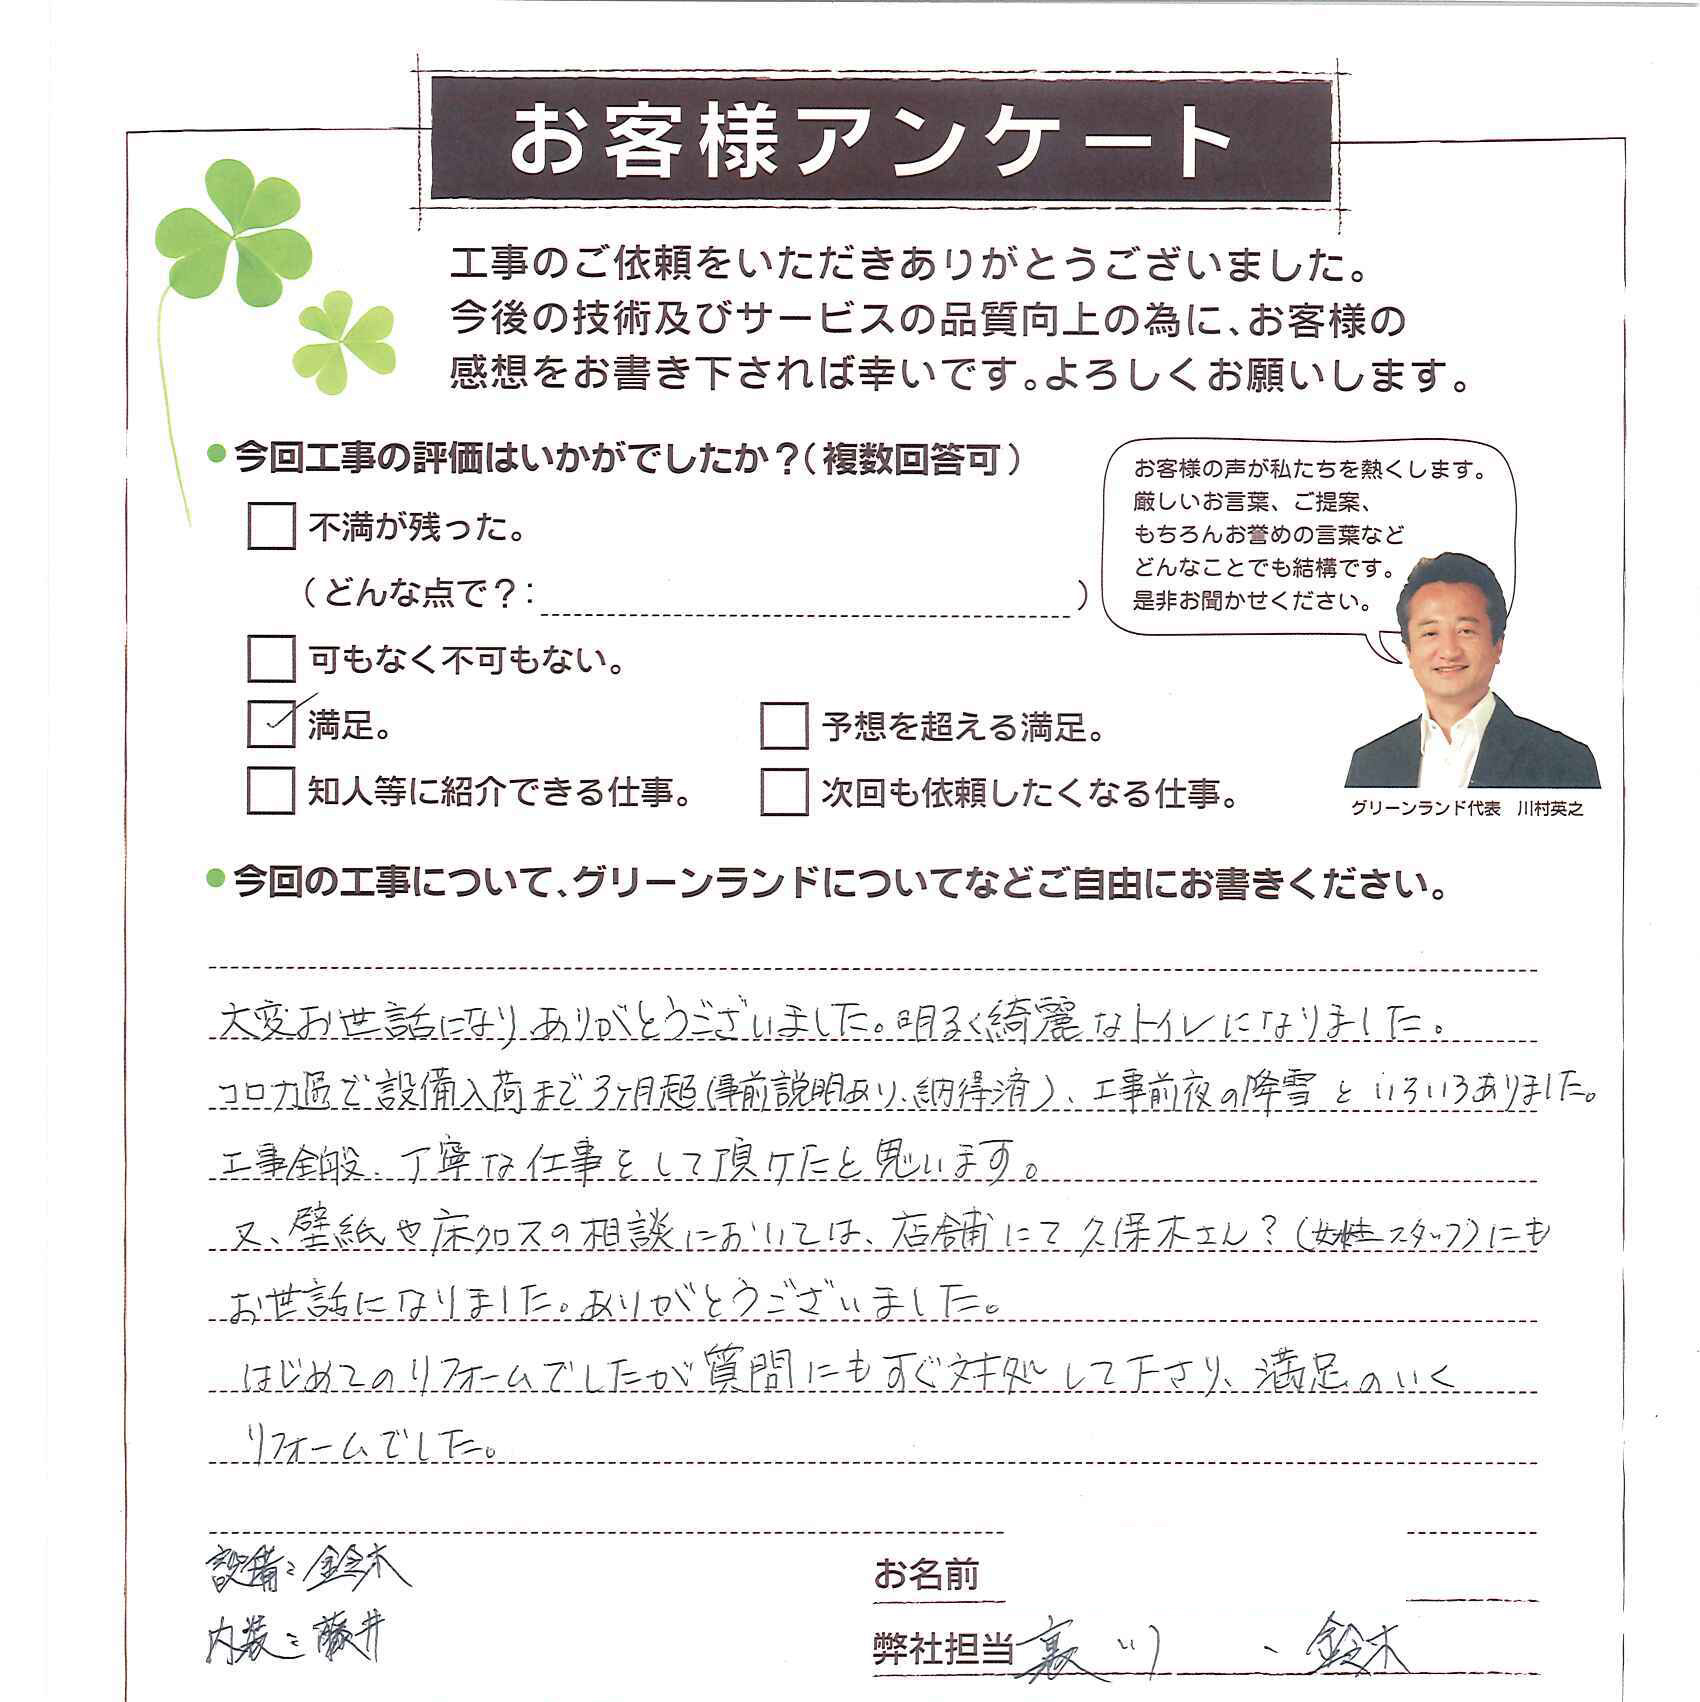 お客様アンケート
工事のご依頼をいただきありがとうございました。
今後の技術及びサービスの品質向上の為に、お客様の
感想をお書き下されば幸いです。よろしくお願いします。
●今回工事の評価はいかがでしたか?(複数回答可)
不満が残った。
(どんな点で?: )
可もなく不可もない。
満足。
予想を超える満足。
知人等に紹介できる仕事。
次回も依頼したくなる仕事。
お客様の声が私たちを熱くします。
厳しいお言葉、ご提案、
もちろんお誉めの言葉など
どんなことでも結構です。
是非お聞かせください。
グリーンランド代表 川村英之
●今回の工事について、グリーンランドについてなどご自由にお書きください。
大変お世話になり、ありがとうございました。明るく綺麗なトイレになりました。
コロナ禍で設備入荷まで3ヶ月超(事前説明あり、納得済)、工事前夜の降雪といろいろありました。
工事全般、丁寧な仕事をして頂けたと思います。
又、壁紙や床クロスの相談においては、店舗にて久保木さん?(女性スタッフ)にも
お世話になりました。ありがとうございました。
はじめてのリフォームでしたが質問にもすぐ対処して下さり、満足のいく
リフォームでした。
設備:鈴木
内装:藤井
お名前
弊社担当 、鈴木